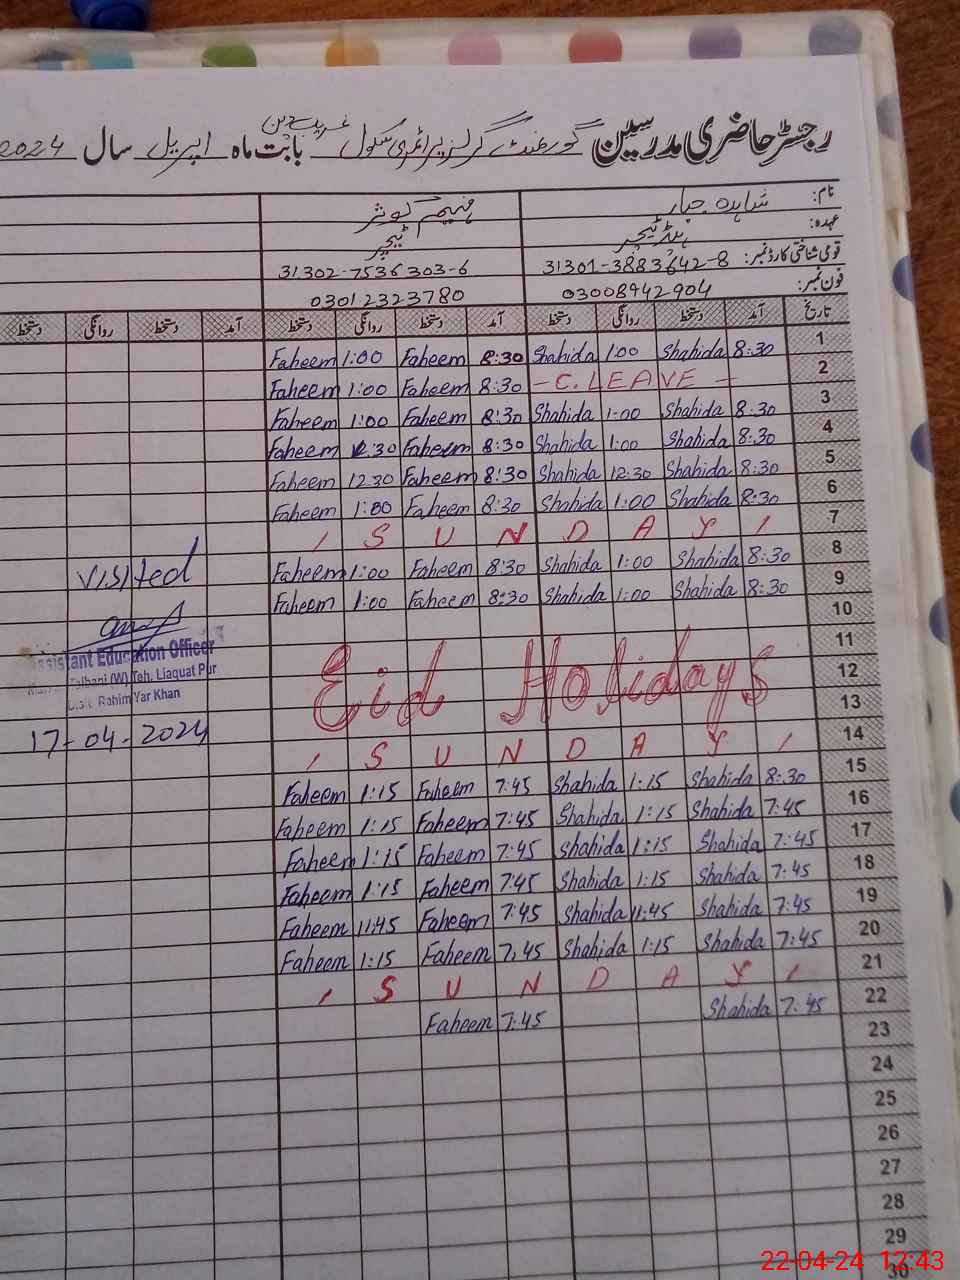 رجسٹر حاضری مدرسین گورنمنٹ گرلز پرائمری سکول غریب دین بابت ماہ اپریل سال 2024
نام: شاہدہ جبار فہیم کوثر
عہدہ: ہیڈ ٹیچر ٹیچر
قومی شناختی کارڈ نمبر: 31301-3883642-8 31302-7536303-6
فون نمبر: 03008942904 03012323780
تاریخ آمد دستخط روانگی دستخط آمد دستخط روانگی دستخط آمد دستخط روانگی دستخط
1 8:30 Shahida 1:00 Shahida 8:30 Faheem 1:00 Faheem
2 - C. LEAVE - 8:30 Faheem 1:00 Faheem
3 8:30 Shahida 1:00 Shahida 8:30 Faheem 1:00 Faheem
4 8:30 Shahida 1:00 Shahida 8:30 Faheem Faheem
5 8:30 Shahida 12:30 Shahida 8:30 Faheem 12:30 Faheem
6 8:30 Shahida 1:00 Shahida 8:30 Faheem 1:00 Faheem
7 / S U N D A Y /
8 8:30 Shahida 1:00 Shahida 8:30 Faheem 1:00 Faheem
9 8:30 Shahida 1:00 Shahida 8:30 Faheem 1:00 Faheem
10
11
12 Eid Holidays
13
14 / S U N D A Y /
15 8:30 Shahida 1:15 Shahida 7:45 Faheem 1:15 Faheem
16 7:45 Shahida 1:15 Shahida 7:45 Faheem 1:15 Faheem
17 7:45 Shahida 1:15 Shahida 7:45 Faheem 1:15 Faheem
18 7:45 Shahida 1:15 Shahida 7:45 Faheem 1:15 Faheem
19 7:45 Shahida 11:45 Shahida 7:45 Faheem 11:45 Faheem
20 7:45 Shahida 1:15 Shahida 7:45 Faheem 1:15 Faheem
21 / S U N D A Y /
22 7:45 Shahida 7:45 Faheem
23
24
25
26
27
28
29
30
Visited
Assistant Education Officer
Talbani (W) Teh. Liaquat Pur
Rahim Yar Khan
17-04-2024
22-04-24 12:43